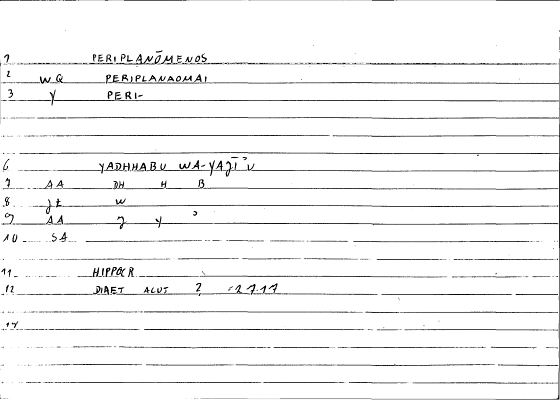 1 PERIPLANŌMENOS
2 WQ PERIPLANAOMAI
3 Y PERI-
6 YADHHABU WA-YAǦĪʾU
7 AA DH H B
8 Jt W
9 AA J Y ʾ
10 SA
11 HIPPOCR
12 DIAET ACUT 2, 27.17
14